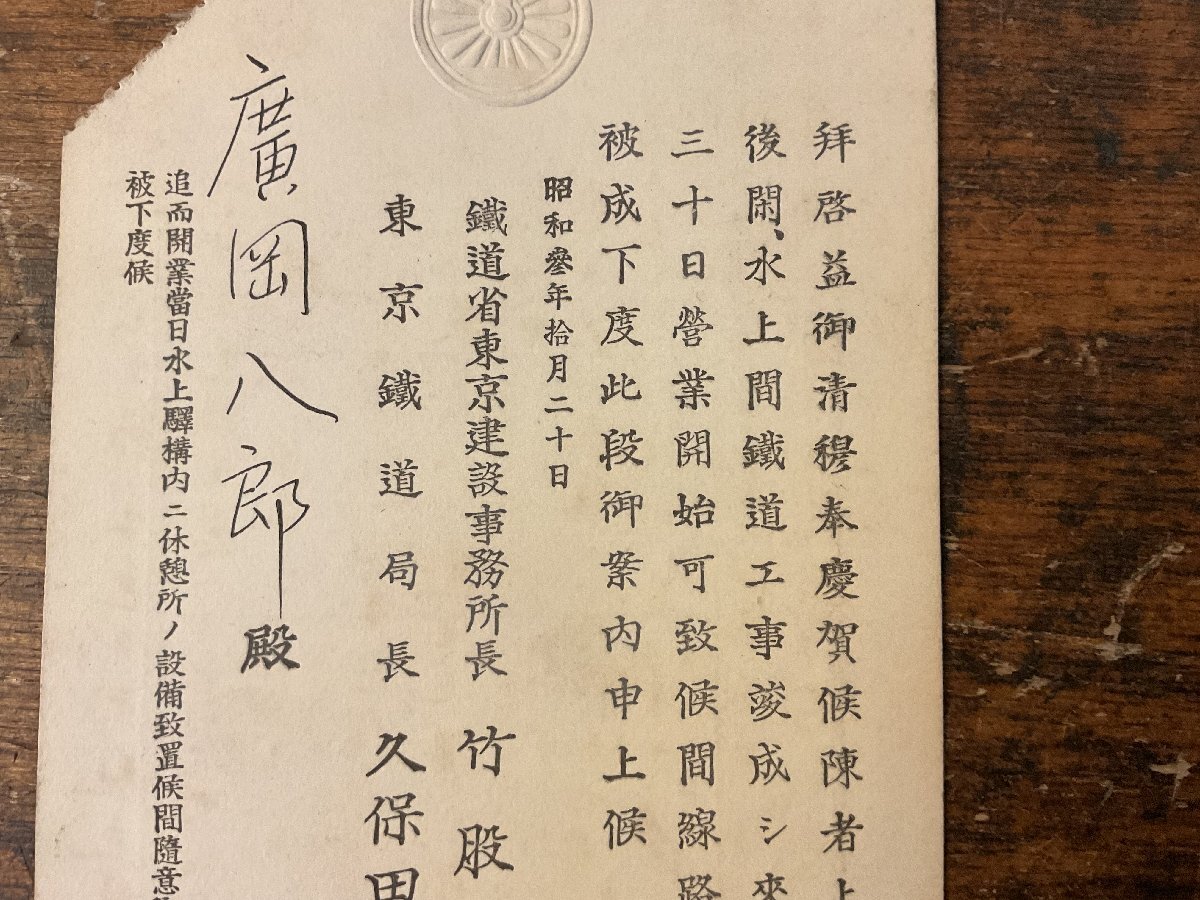 拝啓益御清穆奉慶賀候陳者上
後閑、水上間鐵道工事竣成シ來
三十日營業開始可致候間線路
被成下度此段御案内申上候
昭和參年拾月二十日
鐵道省東京建設事務所長 竹股
東京鐵道局長 久保田
廣岡八郎殿
追而開業當日水上驛構内ニ休憩所ノ設備致置候間隨意
被下度候